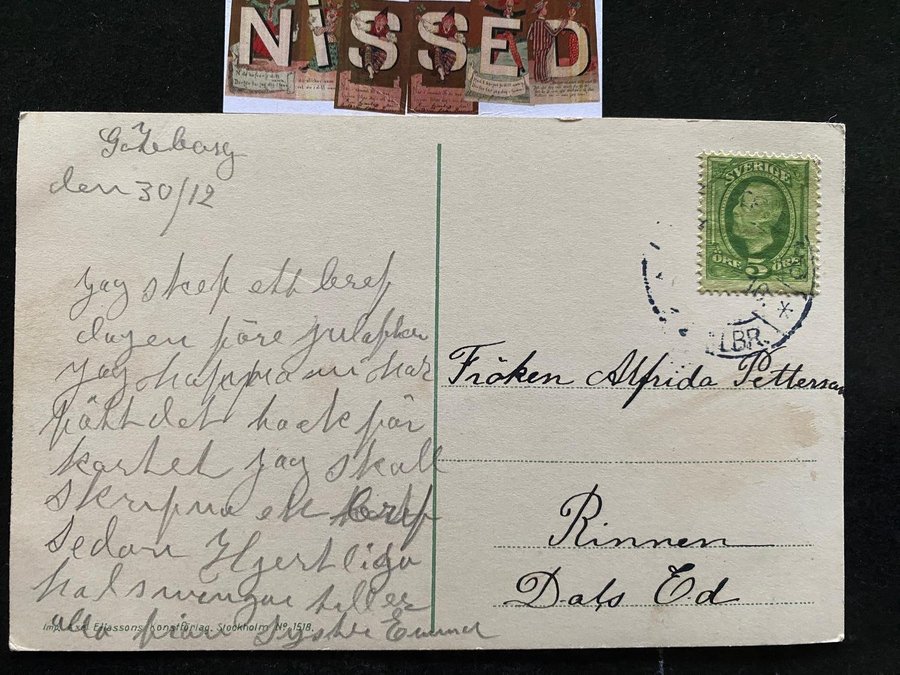 NISSED
Göteborg
den 30/12
jag skef ett bref
dagen före julaftan
jag happas ni har
fått det tack för
kortet jag skall
skrifva ett bref
sedan Hjertliga
halsningar till er
alla från Syster Emma
Imp. Axel Eliassons Konstförlag, Stockholm No. 1518.
SVERIGE
5
ÖRE ÖRE
LBR.
Fröken Alfrida Petterson
Rinnen
Dals Ed